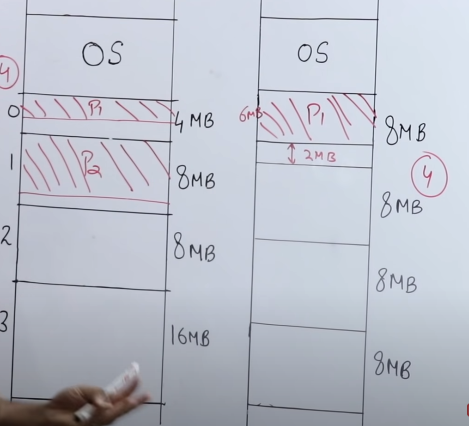 OS
4
0
P1
4 MB
1
P2
8MB
2
8MB
3
16MB
OS
6MB
P1
8MB
2MB
4
8MB
8MB
8MB